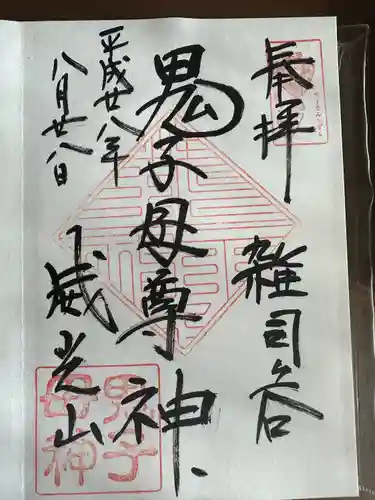 奉拝
雑司谷
鬼子母尊神
平成廿八年
八月廿八日
威光山
鬼子
母神